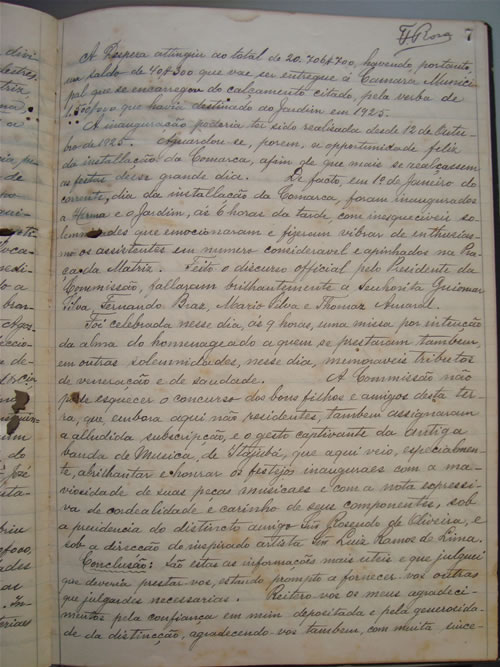 7
A despesa attingiu ao total de 20.706$700, havendo portanto
um saldo de 40$300 que vae ser entregue á Camara Munici-
pal que se encarregou do calçamento citado, pela verba de
1.500$000 que havia destinado ao Jardim em 1925.
A inauguração poderia ter sido realisada desde 12 de Outu-
bro de 1925. Aguardou-se, porem, a opportunidade feliz
da installação da Comarca, afim de que mais se realçassem
as festas desse grande dia. De facto, em 1º de Janeiro do
corrente, dia da installacão da Comarca, foram inaugurados
a Herma e o Jardim, ás 6 horas da tarde, com inesqueciveis so-
lemnidades que emocionaram e fizeram vibrar de enthusias-
mo os assistentes em numero consideravel e apinhados na Pra-
ça da Matriz. Feito o discurso official pelo Presidente da
Commissão, fallaram brilhantemente a Senhorita Guiomar
Silva, Fernando Braz, Mario Silva e Thomaz Amaral.
Foi celebrada nesse dia, ás 9 horas, uma missa por intenção
da alma do homenageado a quem se prestaram tambem,
em outras solemnidades, nesse dia, memoraveis tributos
de veneração e de saudade. A Commissão não
pode esquecer o concurso dos bons filhos e amigos desta ter-
ra, que, embora aqui não residentes, tambem assignaram
a alludida subscripção, e o gesto captivante da antiga
banda de Musica, de Itajubá, que aqui veio, especialmen-
te, abrilhantar e honrar os festejos inauguraes com a ma-
viosidade de suas peças musicaes e com a nota expressi-
va de cordealidade e carinho de seus componentes, sob
a presidencia do distincto amigo Snr. Rosendo de Oliveira, e
sob a direcção do inspirado artista Snr. Luiz Ramos de Lima.
Conclusão: São estas as informações mais uteis e que julguei
que deveria prestar-vos, estando prompto a fornecer-vos outras
que julgardes necessarias. Reitero-vos os meus agradeci-
mentos pela confiança em mim depositada e pela generosida-
de da distincção, agradecendo-vos tambem, com muita since-